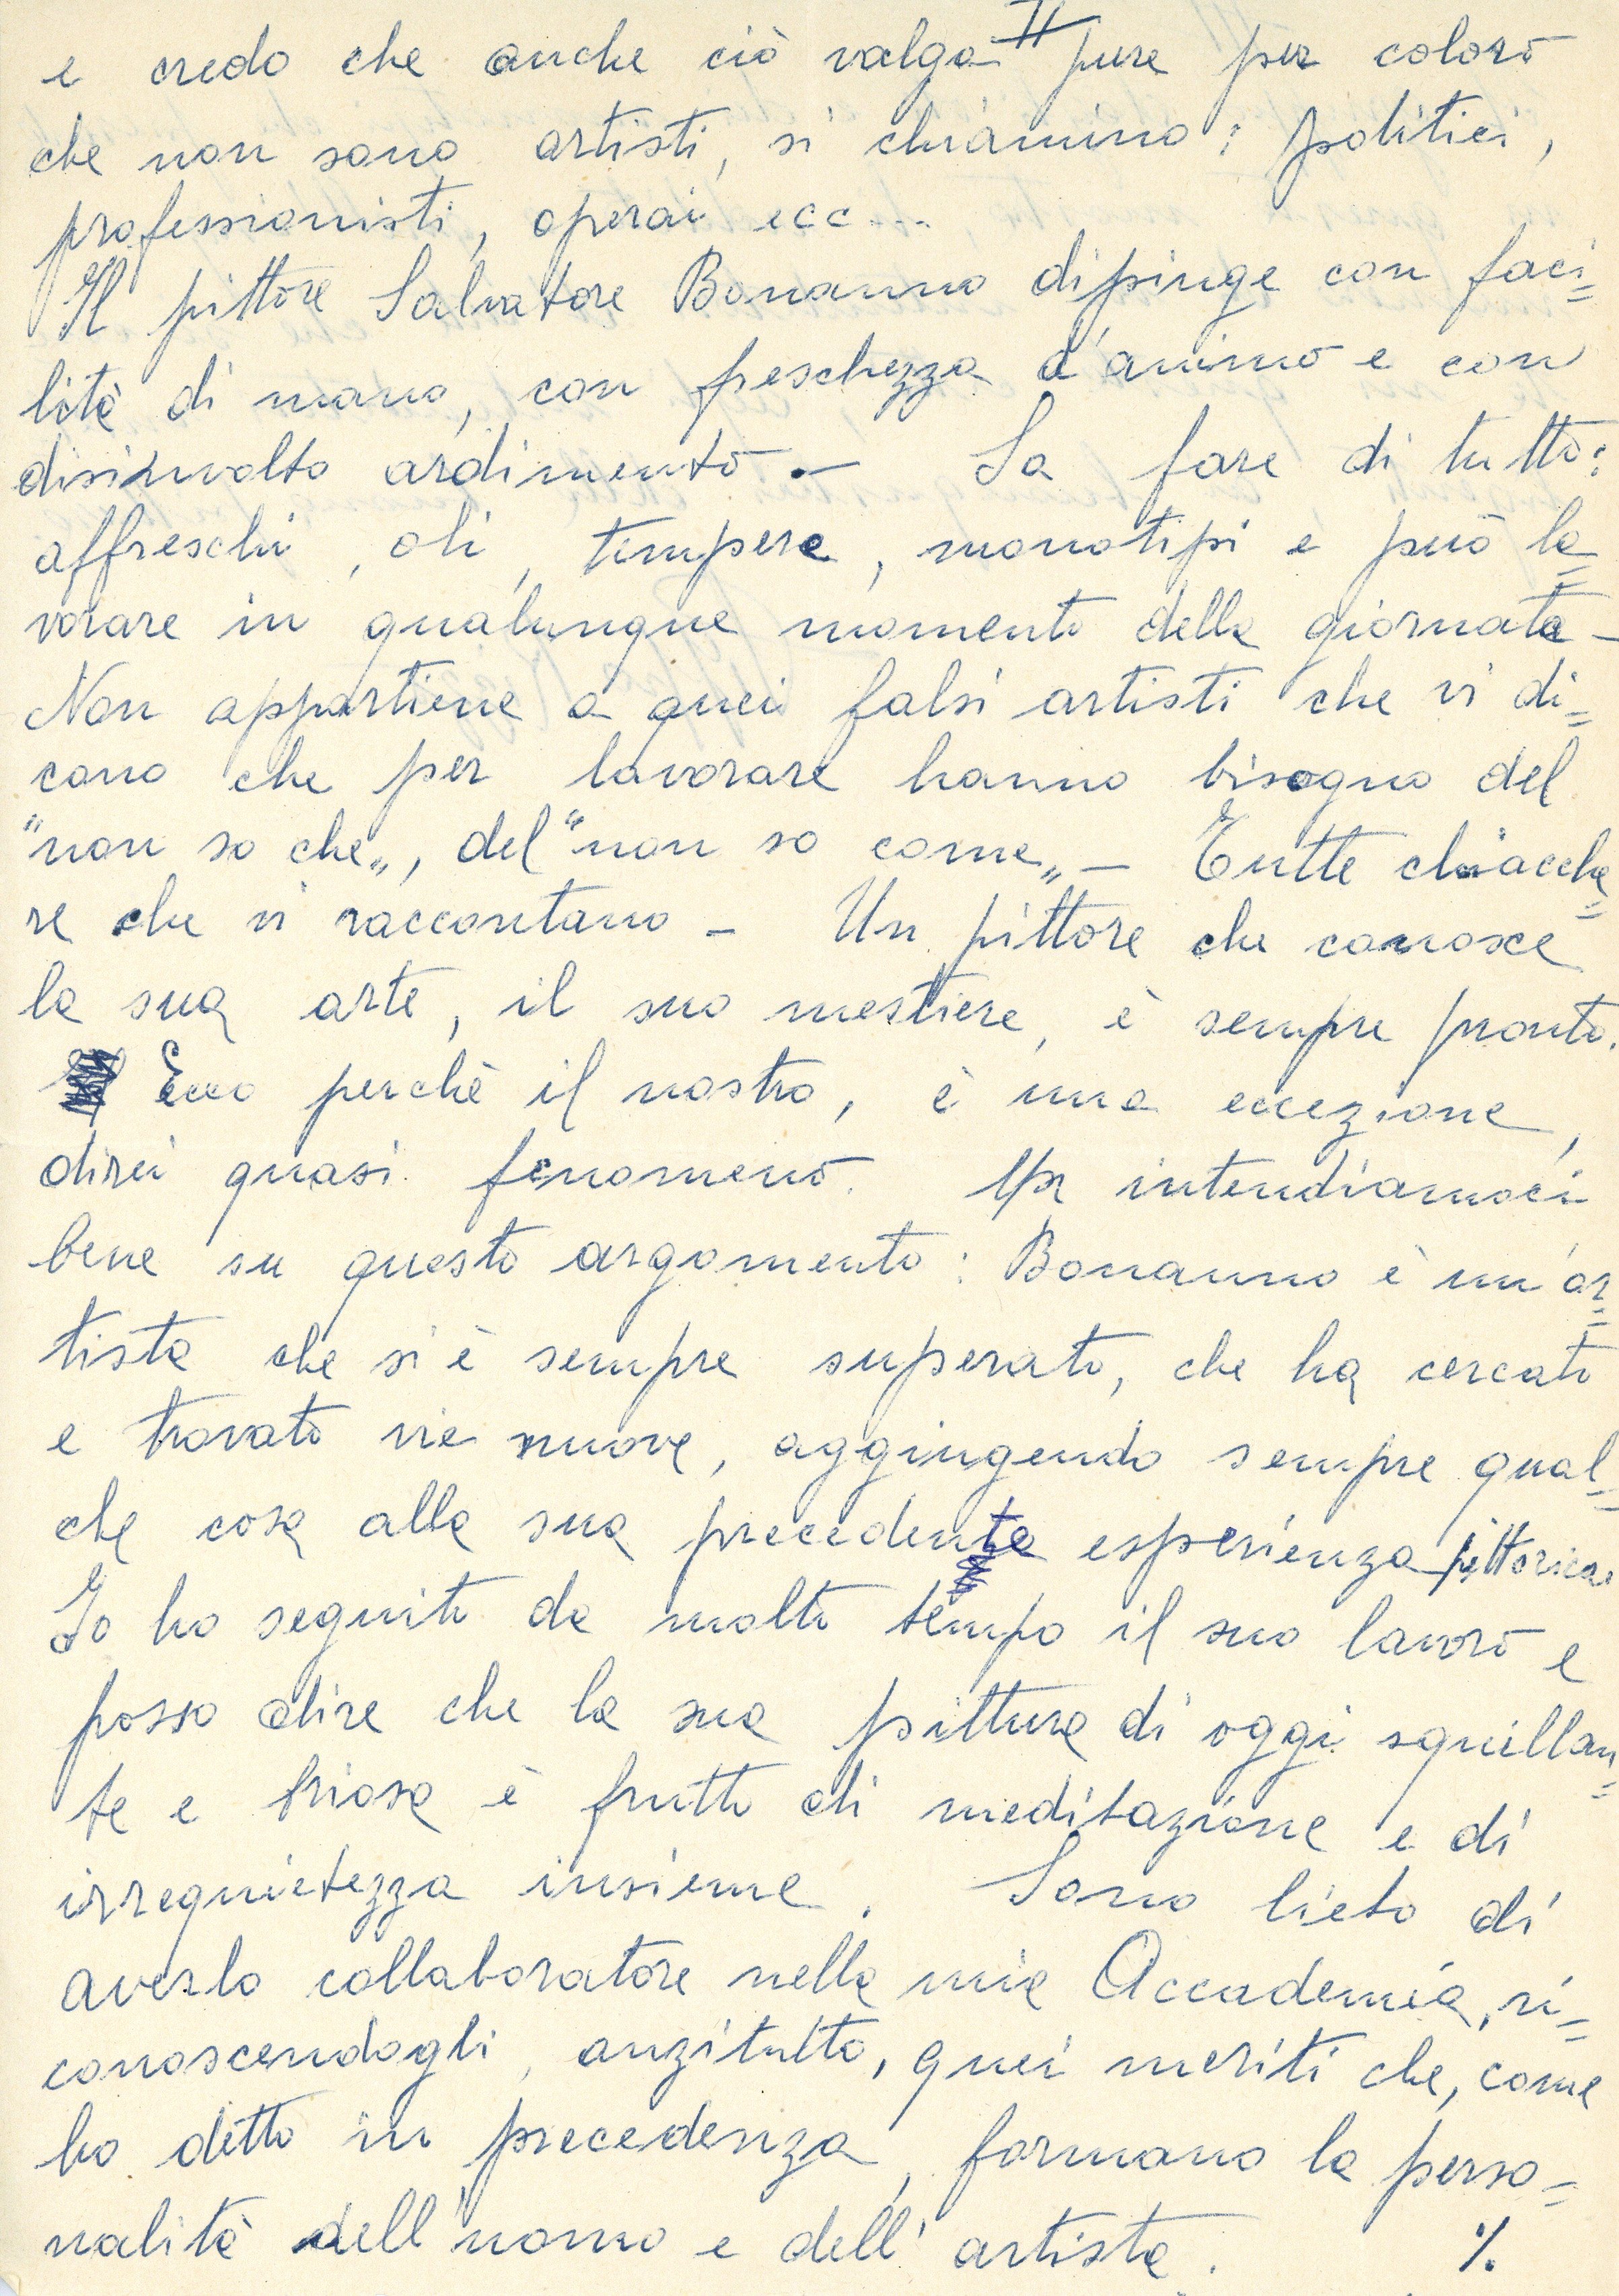 II
e credo che anche ciò valga pure per coloro
che non sono artisti, si chiamino: politici,
professionisti, operai ecc...
Il pittore Salvatore Bonanno dipinge con faci=
lità di mano, con freschezza d'animo e con
disinvolto ardimento.— Sa fare di tutto:
affreschi, oli, tempere, monotipi e può la=
vorare in qualunque momento della giornata—
Non appartiene a quei falsi artisti che vi di=
cono che per lavorare hanno bisogno del
"non so che„, del "non so come„— Tutte chiacche=
re che vi raccontano — Un pittore che conosce
la sua arte, il suo mestiere, è sempre pronto.
Ecco perchè il nostro, è una eccezione,
direi quasi fenomeno. Ma intendiamoci
bene su questo argomento: Bonanno è un'ar=
tista che si è sempre superato, che ha cercato
e trovato vie nuove, aggiungendo sempre qual=
che cosa alla sua precedente esperienza pittorica.
Io ho seguito da molto tempo il suo lavoro e
posso dire che la sua pittura di oggi squillan=
te e briosa è frutto di meditazione e di
irrequietezza insieme. Sono lieto di
averlo collaboratore nella mia Accademia, ri=
conoscendogli, anzitutto, quei meriti che, come
ho detto in precedenza, formano la perso=
nalità dell'uomo e dell'artista. ./.